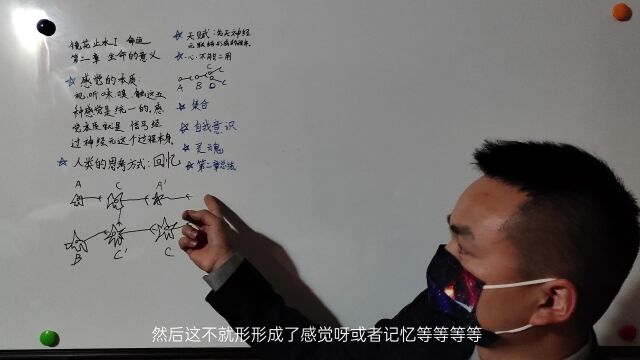 镜花止水I 命运
第二章 生命的意义
☆ 感觉的本质:
视、听、味、嗅、触这五
种感觉是统一的,感
觉本质就是 信号经
过神经元这个过程本身
☆ 人类的思考方式: 回忆
☆ 天赋:
☆ 一心不能二用
A B C D C
☆ 集合
☆ 自我意识
☆ 灵魂
☆ 第二章总结
A C A'
B C' C
然后这不就形形成了感觉呀或者记忆等等等等